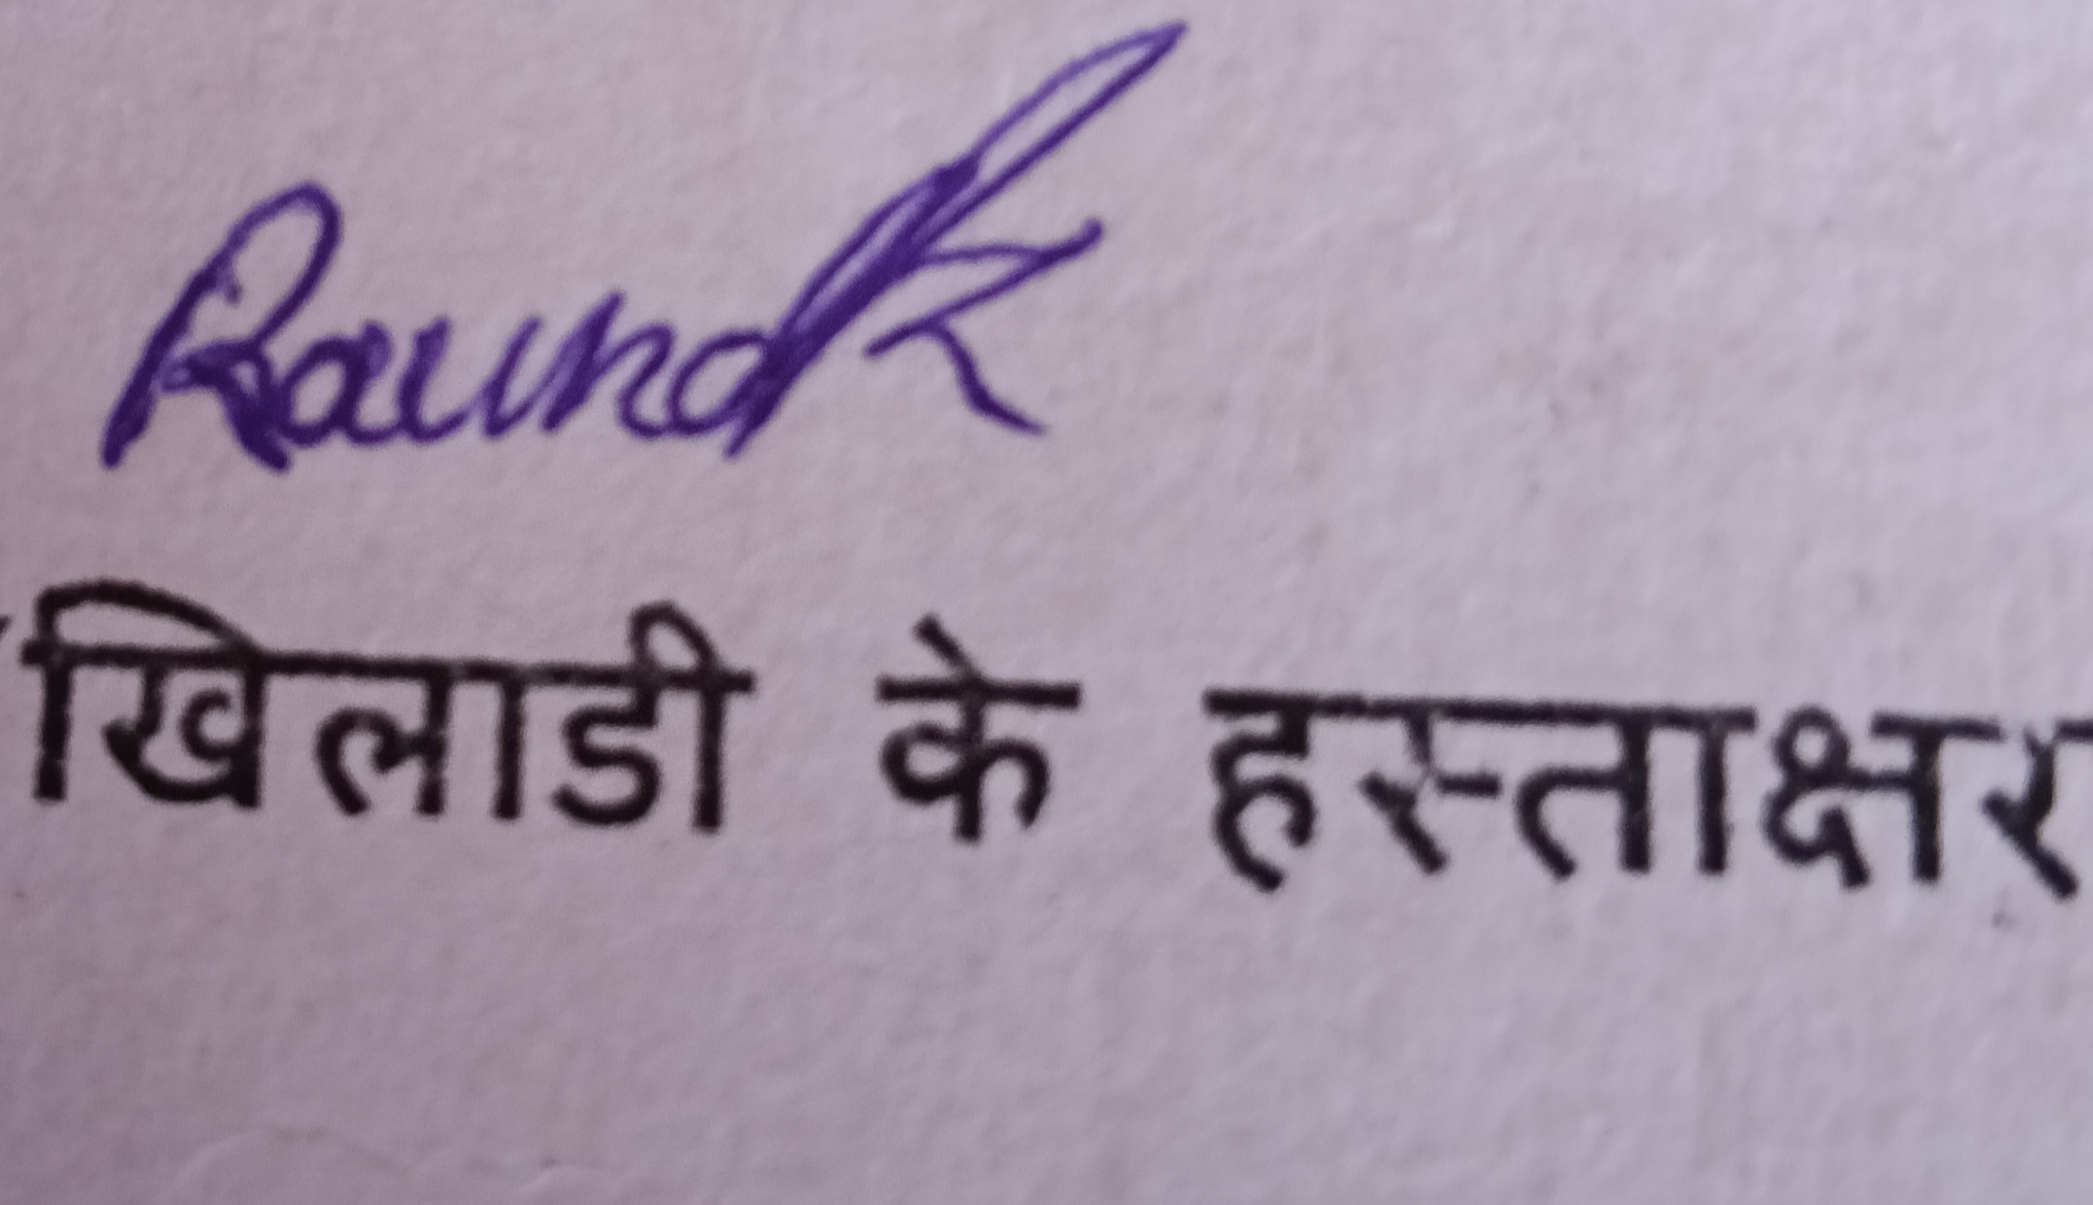 Raunak
खिलाडी के हस्ताक्षर